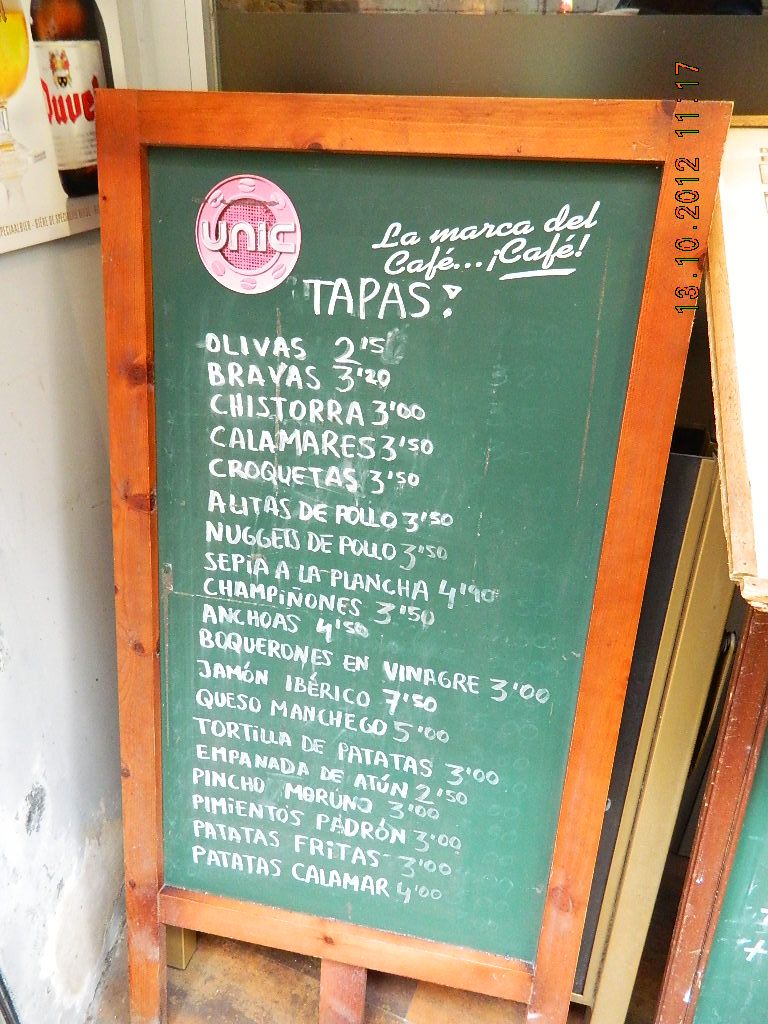 Duvel
SPECIAALBIER - BIÈRE DE SPÉCIALITÉ BELGE
13.10.2012 11:17
unic
La marca del
Café... ¡Café!
TAPAS:
OLIVAS 2'15
BRAVAS 3'20
CHISTORRA 3'00
CALAMARES 3'50
CROQUETAS 3'50
ALITAS DE POLLO 3'50
NUGGETS DE POLLO 3'50
SEPIA A LA PLANCHA 4'90
CHAMPIÑONES 3'50
ANCHOAS 4'50
BOQUERONES EN VINAGRE 3'00
JAMÓN IBÉRICO 7'50
QUESO MANCHEGO 5'00
TORTILLA DE PATATAS 3'00
EMPANADA DE ATÚN 2'50
PINCHO MORUNO 3'00
PIMIENTOS PADRÓN 3'00
PATATAS FRITAS 3'00
PATATAS CALAMAR 4'00